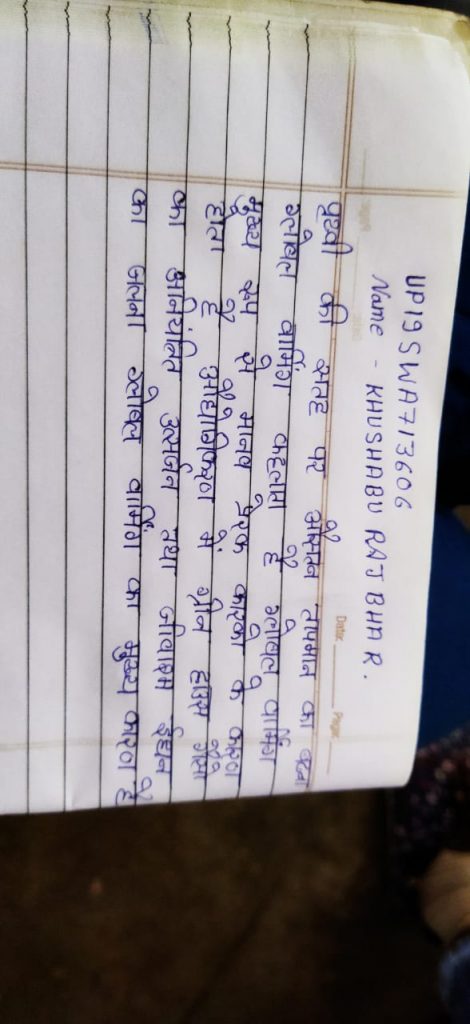 UP19SWA713606
Name - KHUSHABU RAJBHAR.
Date: Page:
पृथ्वी की सतह पर औसतन तापमान का बढ़ना
ग्लोबल वार्मिंग कहलाता है ग्लोबल वार्मिंग
मुख्य रूप से मानव प्रेरक कारको के कारण
होता है औद्योगिकरण में ग्रीन हाउस गैसो
का अनियंत्रित उत्सर्जन तथा जीवाश्म ईंधन
का जलना ग्लोबल वार्मिंग का मुख्य कारण है